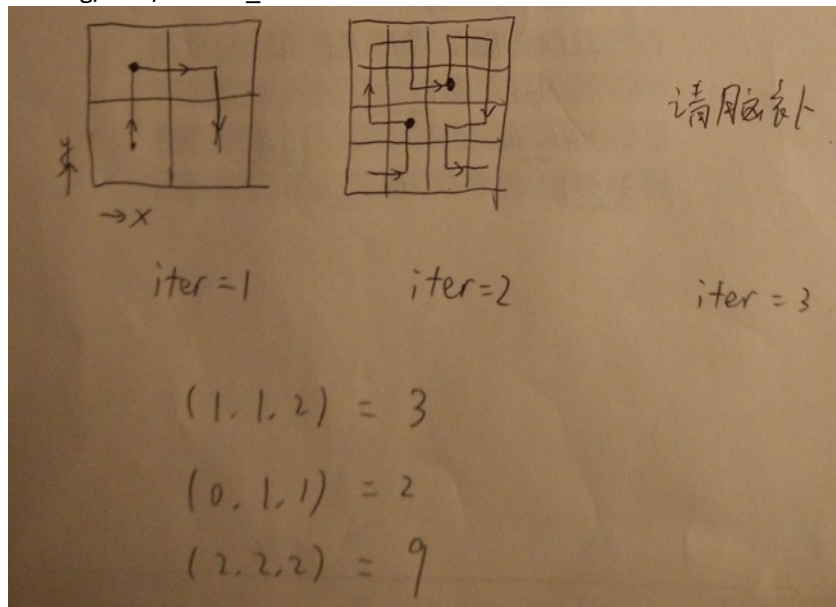 请用脑袋补
y
→x
iter=1
iter=2
iter = 3
(1,1,2) = 3
(0,1,1) = 2
(2,2,2) = 9